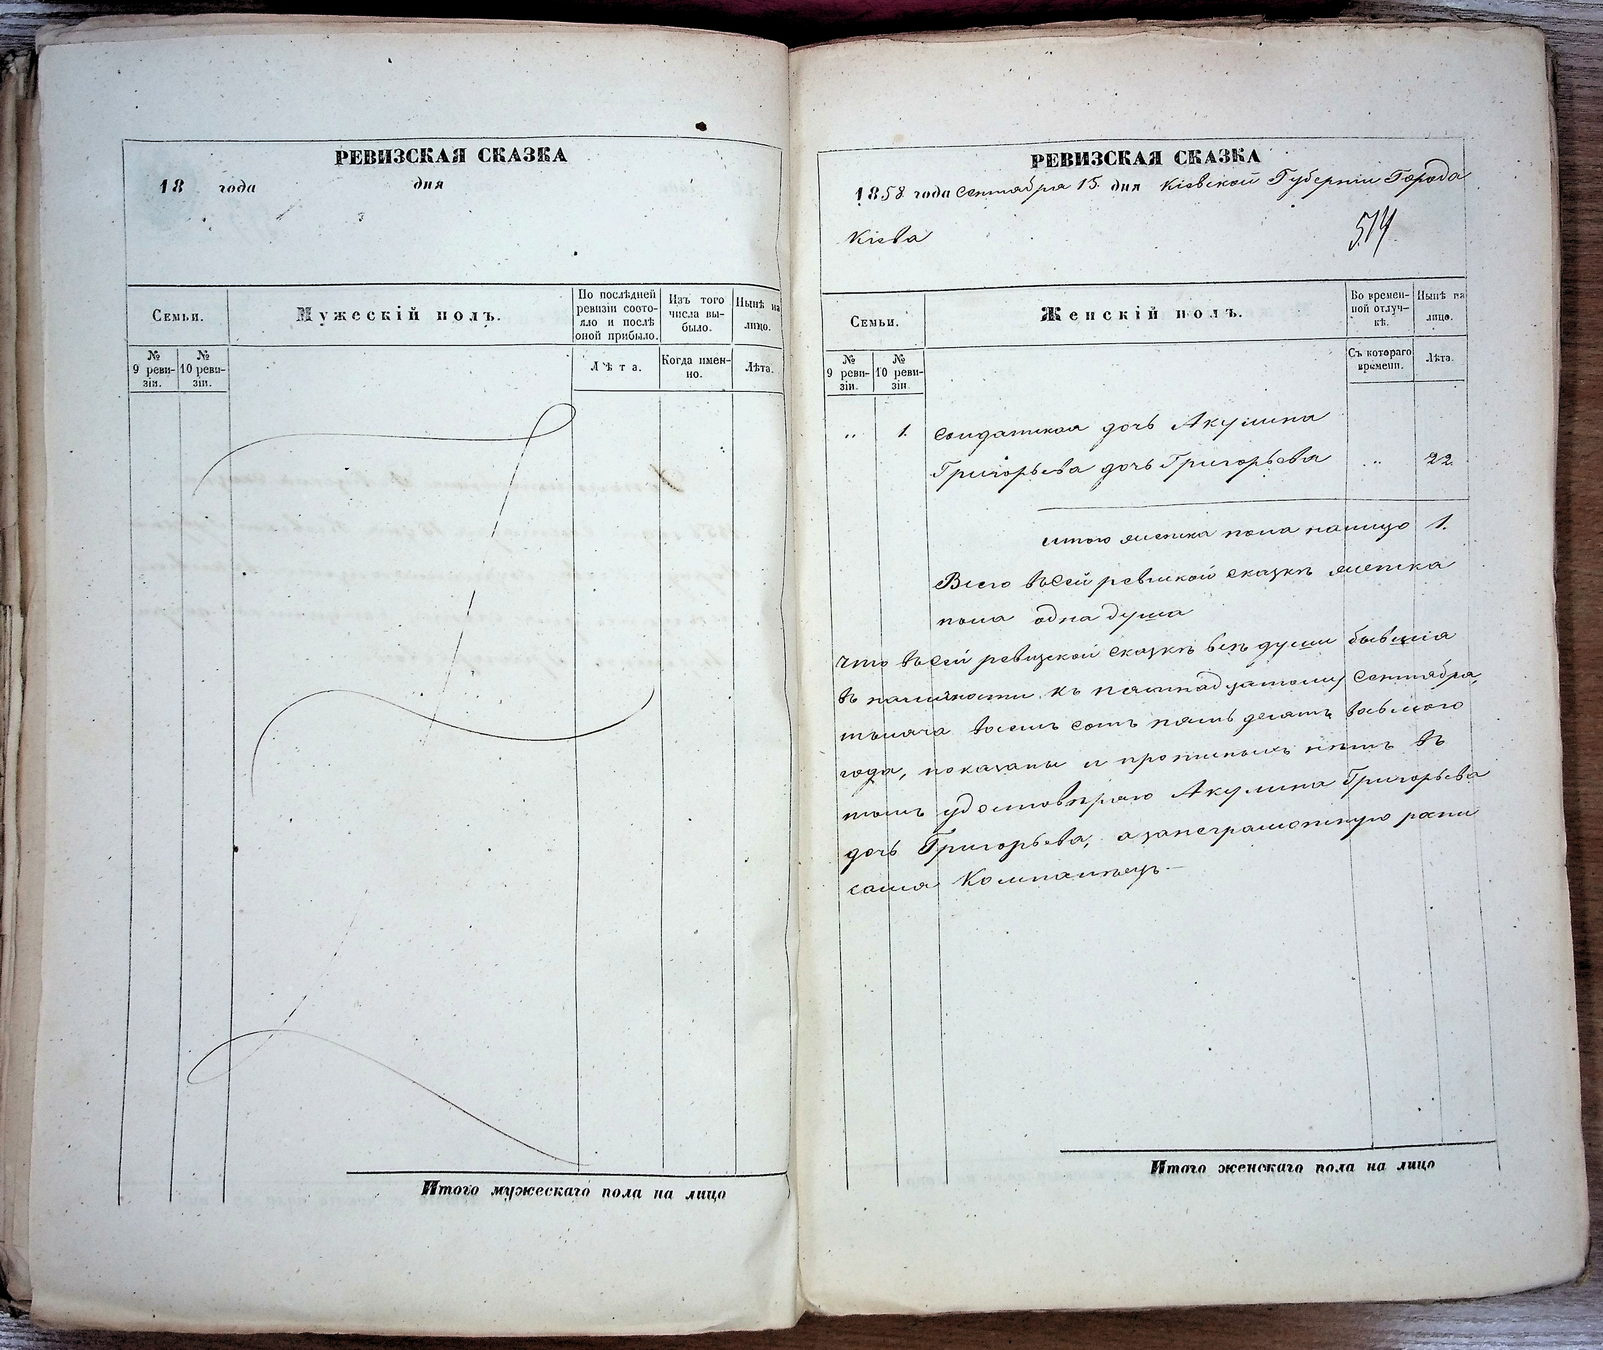 РЕВИЗСКАЯ СКАЗКА
18 года дня
Семьи.
Мужескій полъ.
По послѣдней ревизіи состояло и послѣ оной прибыло.
Изъ того числа выбыло.
Нынѣ на лицо.
№ 9 ревизіи.
№ 10 ревизіи.
Лѣта.
Когда именно.
Лѣта.
Итого мужескаго пола на лицо
РЕВИЗСКАЯ СКАЗКА
1858 года сентября 15 дня Кіевской Губерніи Города
Кіева
514
Семьи.
Женскій полъ.
Во временной отлучкѣ.
Нынѣ на лицо.
№ 9 ревизіи.
№ 10 ревизіи.
Съ котораго времени.
Лѣта.
„ 1. солдатская дочь Акулина
Григорьева дочь Григорьева „ 22.
итого женска пола налицо 1.
Всего въ сей ревизкой сказкѣ женска
пола одна душа
Что въ сей ревизской сказкѣ всѣ души бывшія
въ наличности къ пятнадцатому сентября,
тысяча восемь сотъ пять десятъ восьмого
года, показаны и прописныхъ нѣтъ въ
томъ удостовѣряю Акулина Григорьева
дочь Григорьева, а за неграмотную роспи
сался Компанѣец
Итого женскаго пола на лицо